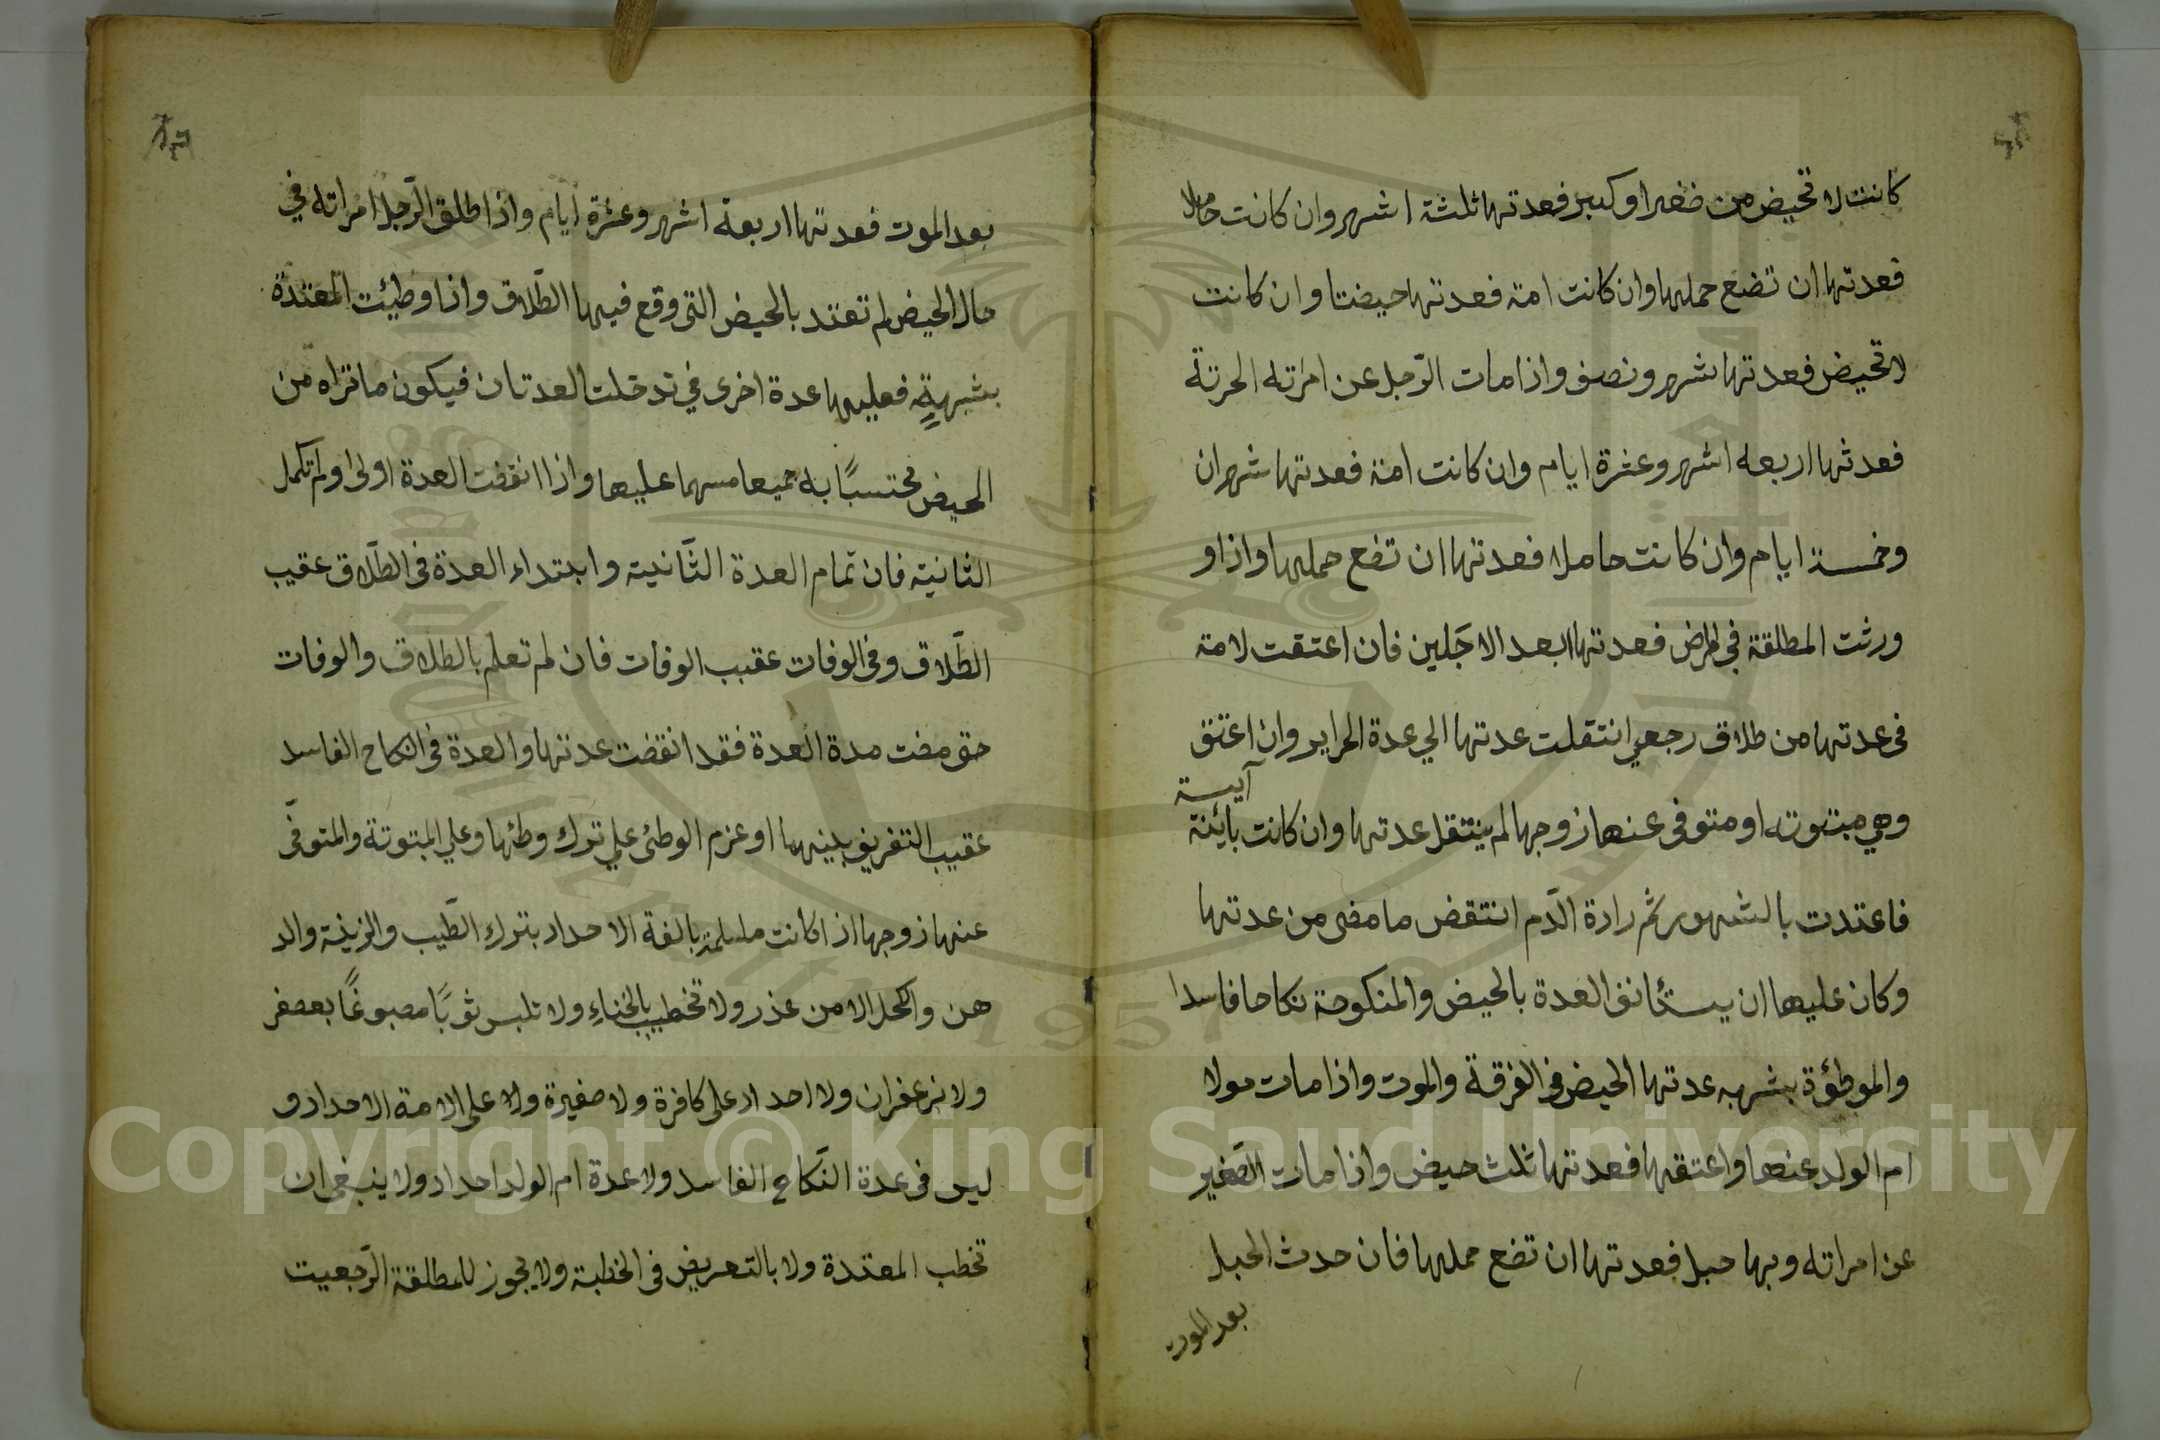 كانت لا تحيض من صغر او كبر فعدتها ثلثة اشهر وان كانت حاملا
فعدتها ان تضع حملها وان كانت امة فعدتها حيضتا وان كانت
لا تحيض فعدتها شهر ونصف واذا مات الرّجل عن امراته الحرّة
فعدتها اربعه اشهر وعشرة ايام وان كانت امة فعدتها شهران
وخمسة ايام وان كانت حاملا فعدتها ان تضع حملها واذا و
ورثت المطلقة في المرض فعدتها ابعد الاجَلين فان اعتقت لامة
في عدتها من طلاق رجعي انتقلت عدتها الي عدة الحراير وان اعتق
آيسة
وهي مبتوته او متوفى عنها زوجها لم ينتقل عدتها وان كانت بائنة
فاعتدت بالشهور ثم رادة الدّم انتقض ما مضى من عدتها
وكان عليها ان يستأنف العدة بالحيض والمنكوحة نكاحا فاسدا
والموطؤة بشهبه عدتها الحيض في الفرقة والموت واذا مات مولا
ام الولد عنها واعتقها فعدتها ثلث حيض واذا مات الصّغير
عن امراته وبها حبل فعدتها ان تضع حملها فان حدث الحبل
بعد الموت
بعد الموت فعدتها اربعة اشهر وعشرة ايام واذا طلق الرّجل امراته في
حال الحيض لم تعتد بالحيض التي وقع فيها الطّلاق واذا وطيئت المعتدّة
بشبهةٍ فعليها عدة اخرى في تدخلت العدتان فيكون ما تراه من
الحيض محتسبًا به جميعا مسهما عليها واذا انقضت العدة اولى ولم تكمل
الثانية فان تمام العدة الثّانية وابتداء العدة في الطّلاق عقيب
الطّلاق وفي الوفات عقيب الوفات فان لم تعلم بالطلاق والوفات
حتى مضت مدة العدة فقد انقضت عدتها والعدة في النكاح الفاسد
عقيب التفريق بينهما او عزم الوطئ علي ترك وطئها وعلي المبتوتة والمتوفّى
عنها زوجها اذا كانت مسلمة بالغة الاحداد بترك الطّيب والزينة والد
هن والكحل الا من عذر ولا تخطيب بالخناء ولا تلبس ثوبًا مصبوغًا بعصفر
ولا زعفران ولا احداد على كافرة ولا صغيرة ولا على الامة الاحداد و
ليس في عدة النّكاح الفاسد ولا عدة ام الولد احداد ولا ينبغى ان
تخطب المعتدة ولا بالتعريض في الخطبة ولا يجوز للمطلقة الرّجعيت
Copyright © King Saud University
1957